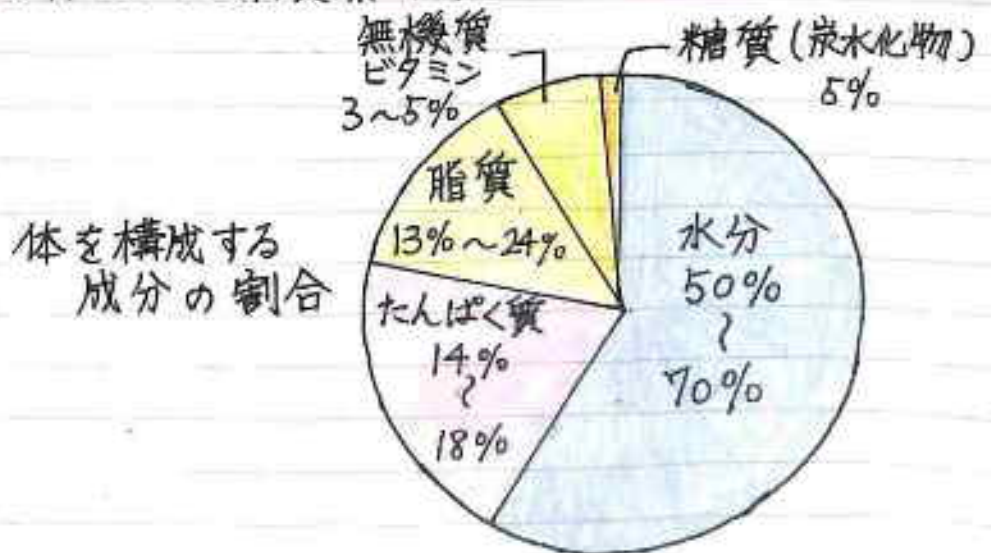 無機質
ビタミン
3～5%
糖質(炭水化物)
5%
脂質
13%～24%
体を構成する
成分の割合
たんぱく質
14%
～
18%
水分
50%
～
70%